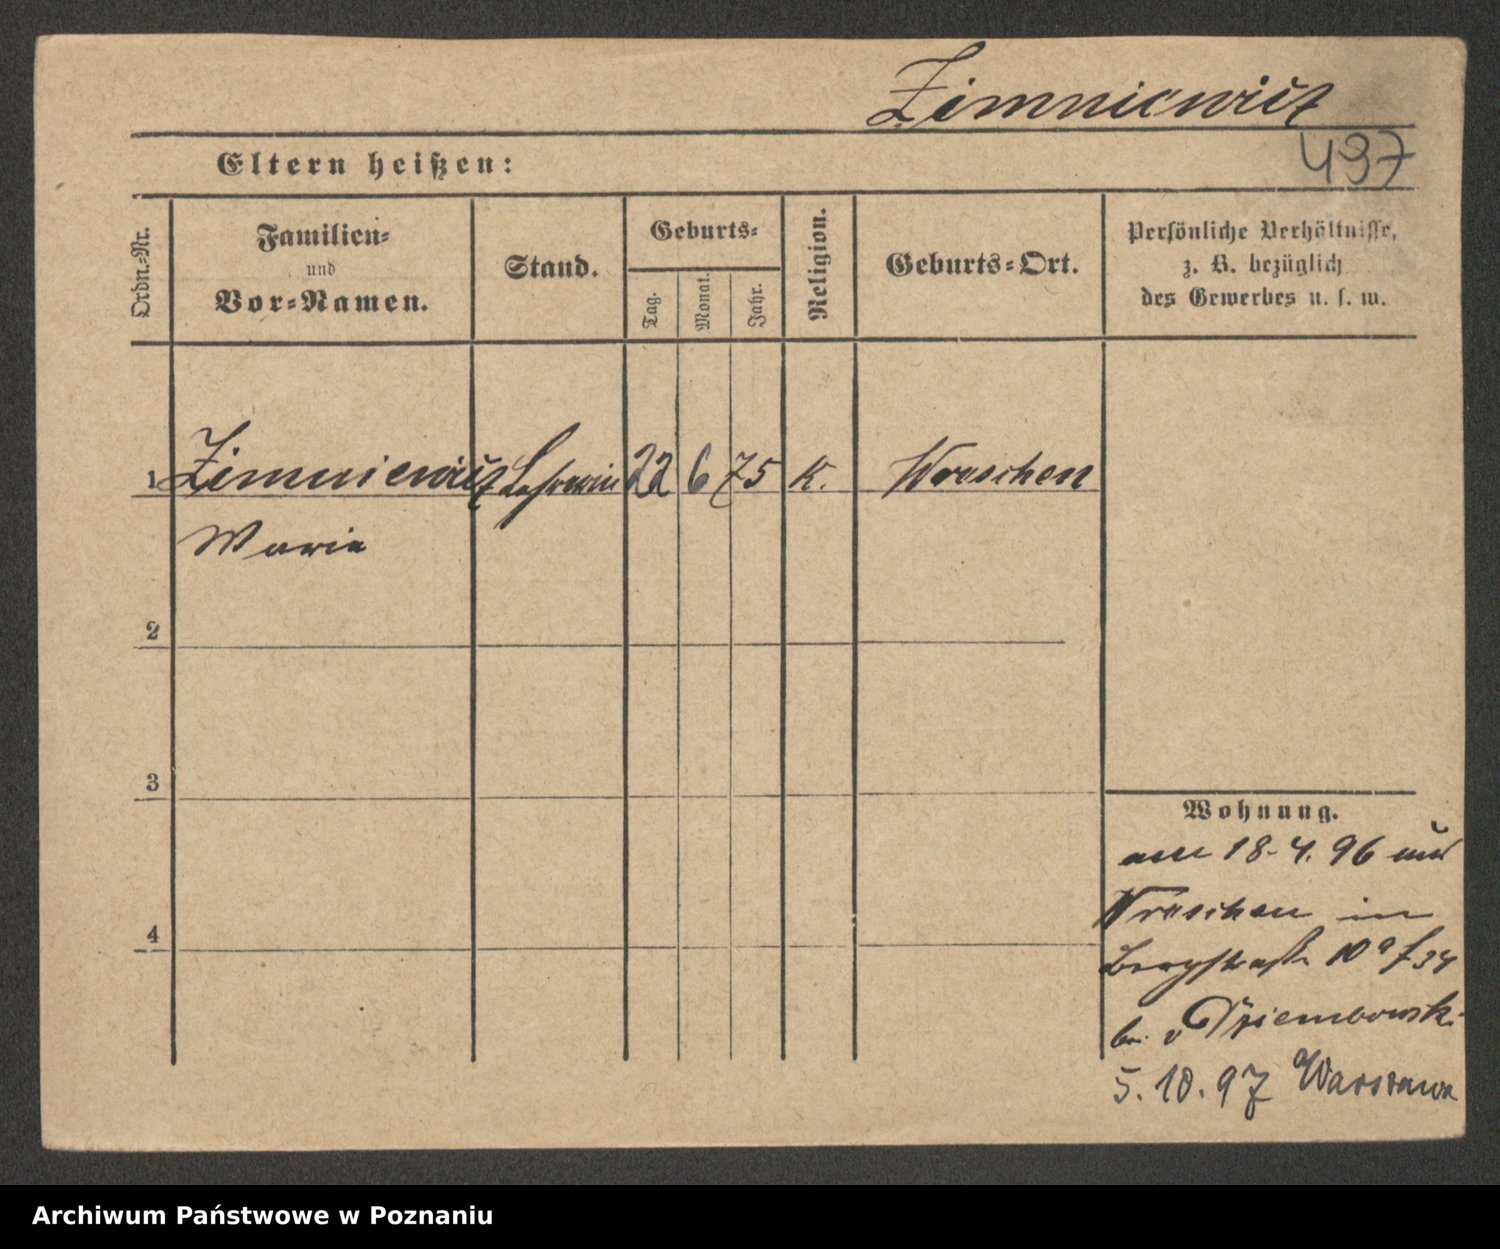 Zimniewicz
497
Eltern heißen:
Ordn.-Nr.
Familien-
und
Vor-Namen.
Stand.
Geburts-
Tag.
Monat.
Jahr.
Religion.
Geburts-Ort.
Persönliche Verhältnisse,
z. B. bezüglich
des Gewerbes u. s. w.
1 Zimniewicz Lehrerin 22 6 75 K. Wreschen
Marie
2
3
4
Wohnung.
am 18. 4. 96 aus
Wreschen in
Bergstraße 10a
b. v Dziembowski
5. 10. 97 Warszawa
Archiwum Państwowe w Poznaniu